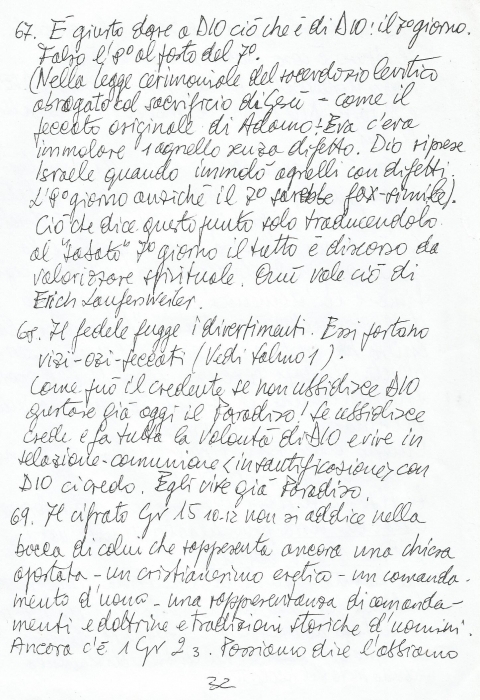 67. È giusto dare a DIO ciò che è di DIO: il 7º giorno.
Falso l'8º al posto del 7º.
(Nella legge cerimoniale del sacerdozio levitico
abrogato col sacrificio di Gesù - come il
peccato originale di Adamo! Eva c'era
immolare 1 agnello senza difetto. Dio riprese
Israele quando immolò agnelli con difetti.
L'8º giorno anziché il 7º sarebbe fax-simile).
Ciò che dice questo punto solo traducendolo
al "sabato" 7º giorno il tutto è discorso da
valorizzare spirituale. Qui vale ciò di
Erich
68. Il fedele fugge i divertimenti. Essi portano
vizi-ozi-peccati (Vedi Salmo 1).
Come può il credente se non ubbidisce DIO
gustare già oggi il Paradiso! Se ubbidisce
crede e fa tutta la Volontà di DIO e vive in
relazione-comunione <inantificasione> con
DIO ci credo. Egli vive già Paradiso.
69. Il cifrato Gv 15 10-12 non si addice nella
bocca di colui che rappresenta ancora una chiesa
apostata - un cristianesimo eretico - un comanda-
mento d'uomo - una rappresentanza di comanda-
menti e dottrine e tradizioni storiche d'uomini.
Ancora c'è 1 Gv 2 3. Possiamo dire l'abbiamo
32